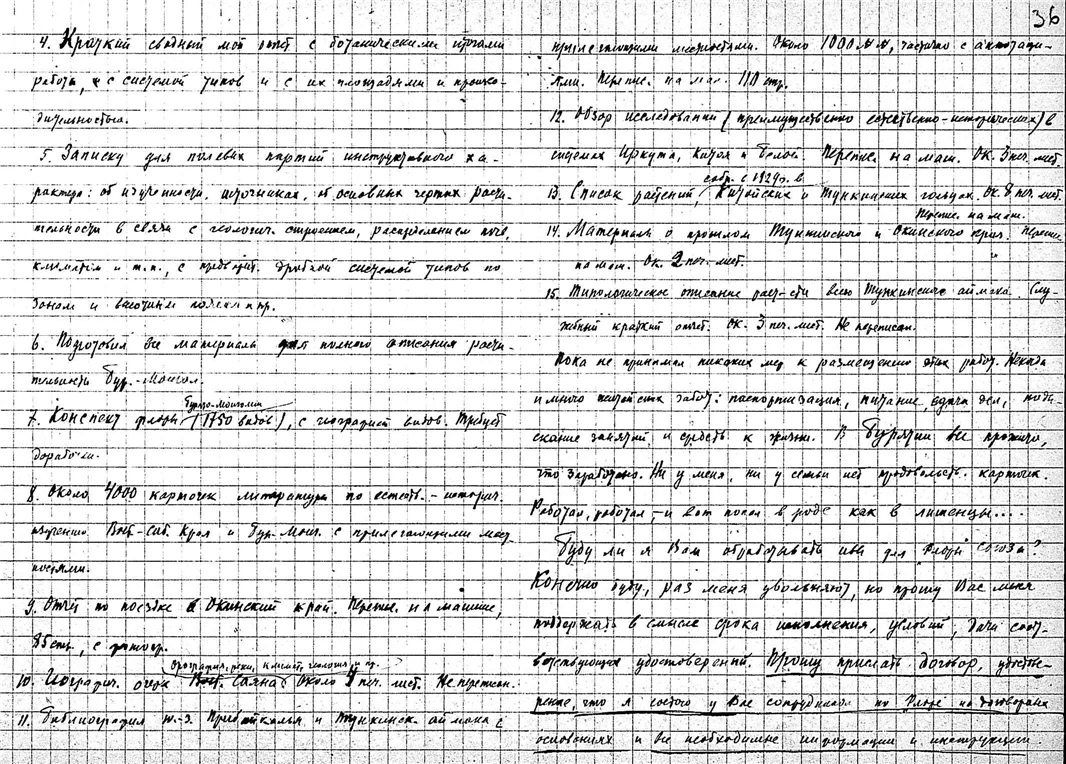 36
4. Краткий сводный мой отчет с ботаническими итогами
работы, с системой типов и с их площадями и произво-
дительностью.
5. Записку для полевых партий инструктивного ха-
рактера: об изученности, источниках, об основных чертах расти-
тельности в связи с геологич. строением, распределением почв,
климатом и т.п., с предварит. дробной системой типов по
зонам и высотным поясам и пр.
6. Подготовил все материалы для полного описания расти-
тельности Бур.-Монгол.
Бурято-Монголии
7. Конспект флоры (1750 видов), с географией видов. Требует
доработки.
8. Около 4000 карточек литературы по естеств.-историч.
изучению Вост.-Сиб. Края и Бур.-Монг. с прилегающими мест-
ностями.
9. Отчет по поездке в Окинский край. Перепис. на машине,
85 стр., с фотогр.
Орография, реки, климат, геология и пр.
10. Географич. очерк Вост. Саяна. Около 1 печ. лист. Не переписан.
11. Библиография ю.-з. Прибайкалья и Тункинск. аймака с
прилегающими местностями. Около 1000 №№, частично с аннотаци-
ями. Перепис. на маш. 110 стр.
12. Обзор исследований (преимущественно естественно-исторических) в
системах Иркута, Китоя и Белой. Перепис. на маш. Ок. 3 печ. лист.
собр. с 1929 г. в
13. Список растений, Китойских и Тункинских гольцах. Ок. 8 печ. лист.
Перепис. на маш.
14. Материалы о прошлом Тункинского и Окинского края.
на маш. Ок. 2 печ. лист.
15. Типологическое описание раст-сти всего Тункинского аймака. Слу-
жебный краткий отчет. Ок. 3 печ. лист. Не переписан.
Пока не принимал никаких мер к размещению этих работ. Некогда
и много житейских забот: паспортизация, питание, сдача дел, поды-
скание занятий и средств к жизни. В Бурятии все прожито,
что заработано. Ни у меня, ни у семьи нет продовольств. карточек.
Работал, работал, – и вот попал в роде как в лишенцы....
Буду ли я Вам обрабатывать ивы для Флоры Союза?
Конечно буду, раз меня увольняют, но прошу Вас меня
поддержать в смысле срока исполнения, условий, дачи соот-
ветствующих удостоверений. Прошу прислать договор, удостове-
рение, что я состою у Вас сотрудником по Флоре на договорных
основаниях и все необходимые информации и инструкции.